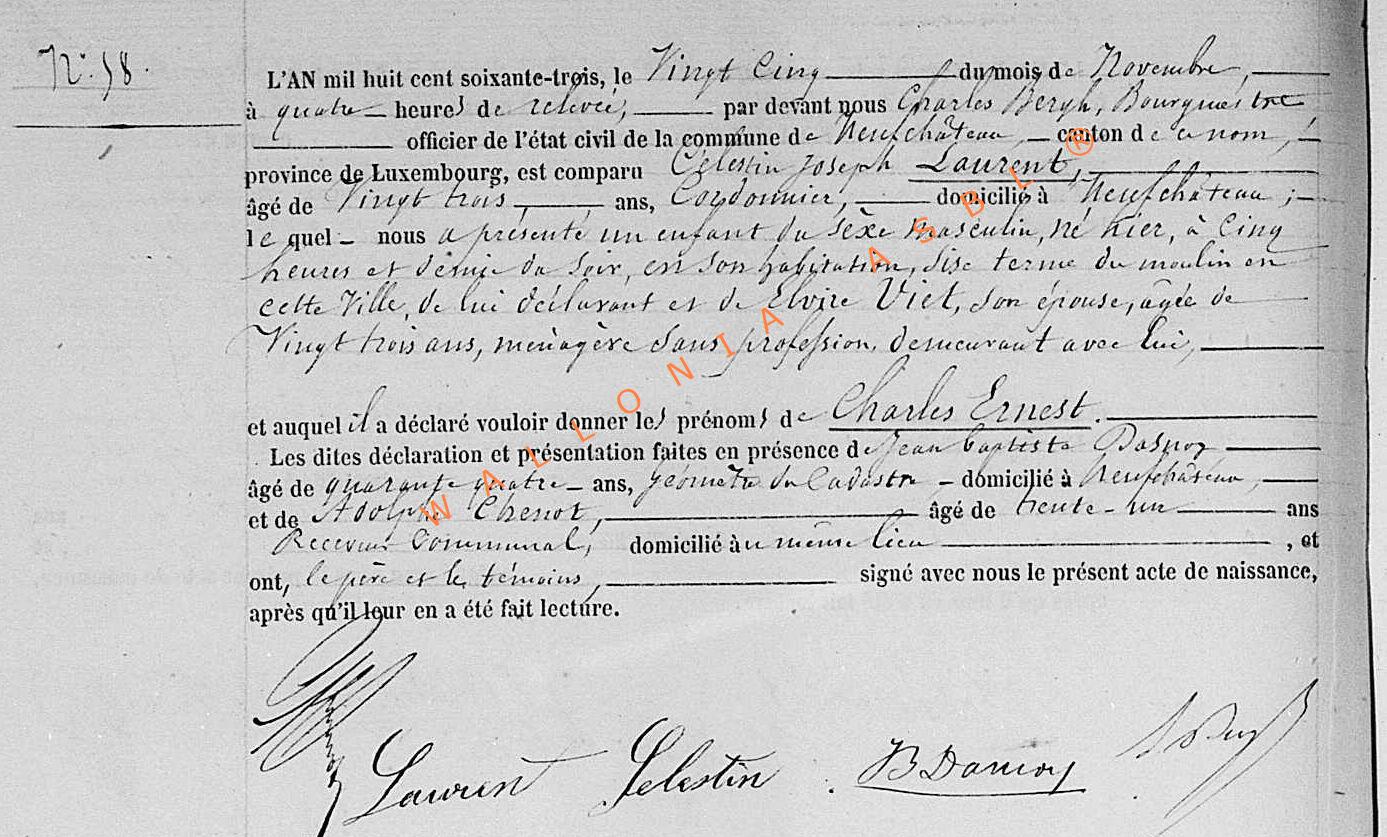 N° 58.
L'AN mil huit cent soixante-trois, le Vingt Cinq du mois de Novembre,
à quatre heures de relevée, par devant nous Charles Bergh, Bourgmestre
officier de l'état civil de la commune de Neufchâteau, canton de ce nom,
province de Luxembourg, est comparu Célestin Joseph Laurent,
âgé de Vingt trois, ans, Cordonnier, domicilié à Neufchâteau;
lequel nous a présenté un enfant du sèxe masculin, né hier, à Cinq
heures et demie du soir, en son habitation, sise terme du moulin en
cette Ville, de lui déclarant et de Elvire Viet, son épouse, âgée de
Vingt trois ans, ménagère sans profession, demeurant avec lui,
et auquel il a déclaré vouloir donner les prénoms de Charles Ernest.
Les dites déclaration et présentation faites en présence de Jean baptiste Dasnoy
âgé de quarante quatre ans, géomètre du Cadastre domicilié à Neufchâteau,
et de Adolphe Chenot, âgé de trente-un ans
Receveur Communal, domicilié au même lieu, et
ont, le père et les témoins, signé avec nous le présent acte de naissance,
après qu'il leur en a été fait lecture.
Laurent Celestin. JB Dasnoy
WALLONIA ASBL ®